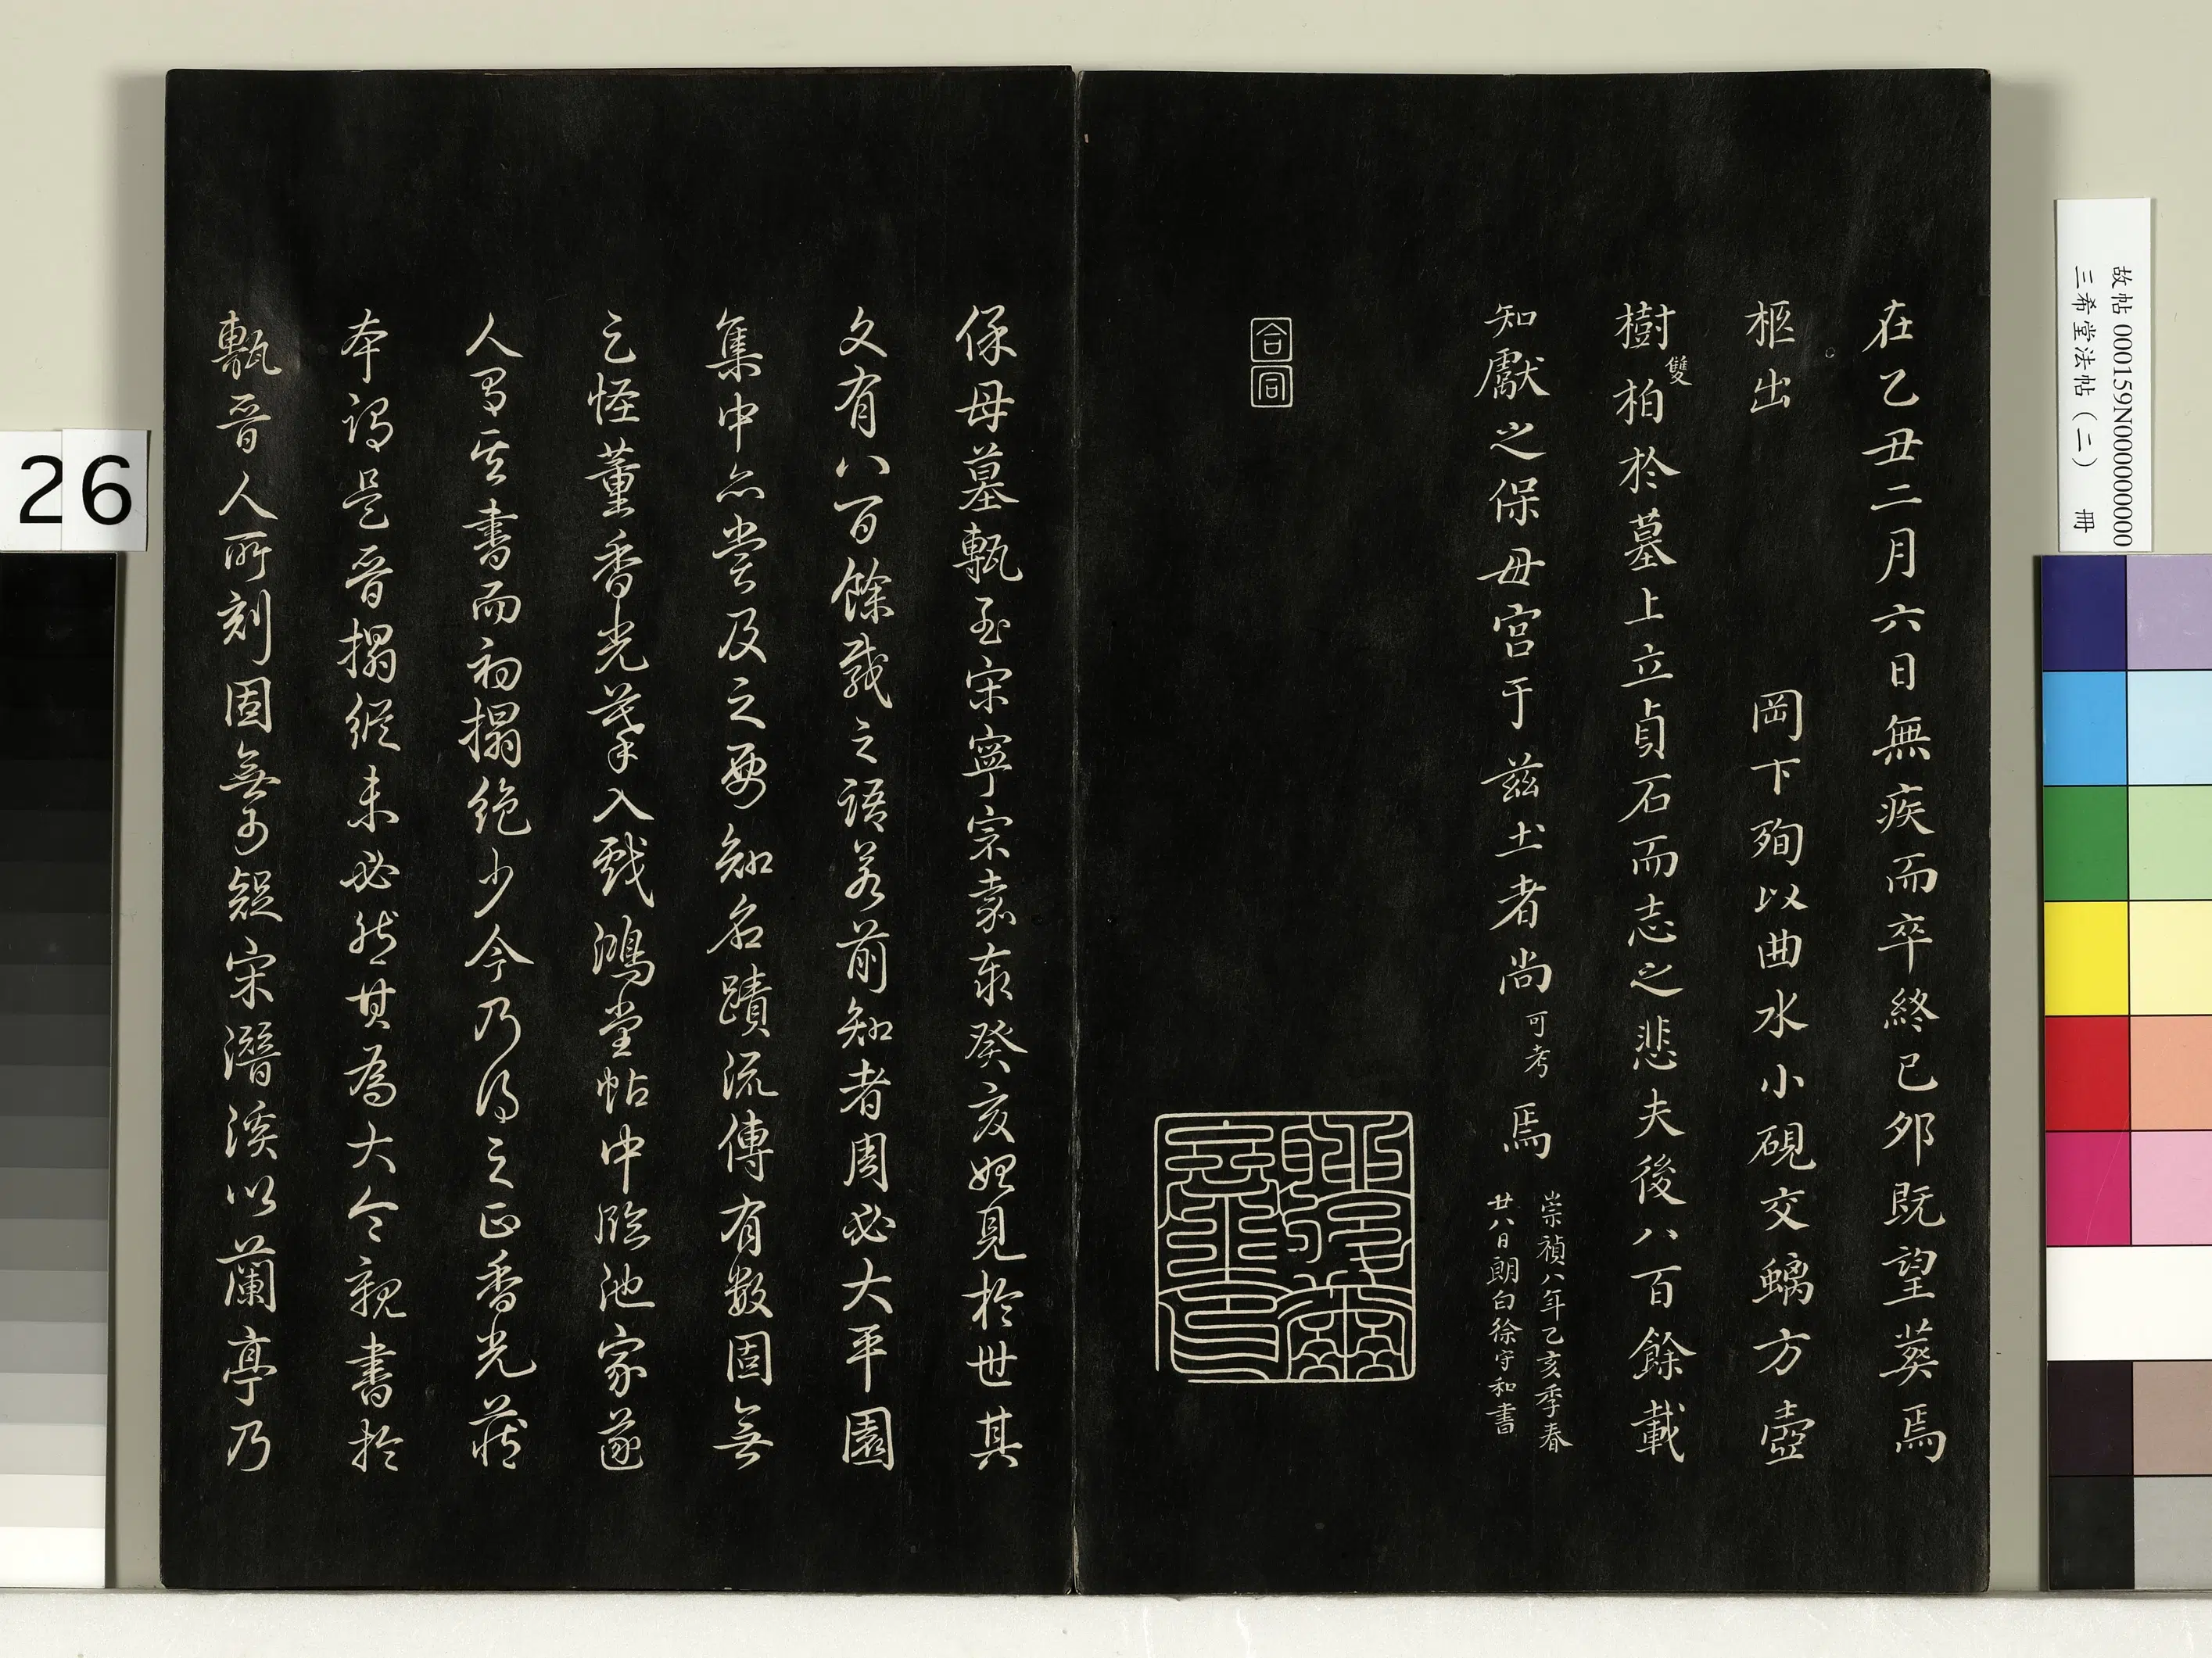 故帖 000159N000000000
三希堂法帖（二） 冊
在乙丑二月六日無疾而卒終巳夘既望葬焉
柩出 岡下殉以曲水小硯交螭方壺
樹雙柏於墓上立貞石而志之悲夫後八百餘載
知獻之保母宮于兹土者尚可考焉
崇禎八年乙亥季春
廿八日朗白徐守和書
合同
保母墓甎至宋寧宗嘉泰癸亥始見於世其
文有八百餘載之語若前知者周必大平園
集中亦嘗及之要知名蹟流傳有數固無
足怪董香光摹入戲鴻堂帖中臨池家遂
人習其書而初搨絕少今乃得之正香光藏
本謂是晉搨縱未必然其為大令親書於
甎晉人所刻固無可疑宋潛溪以蘭亭乃
26